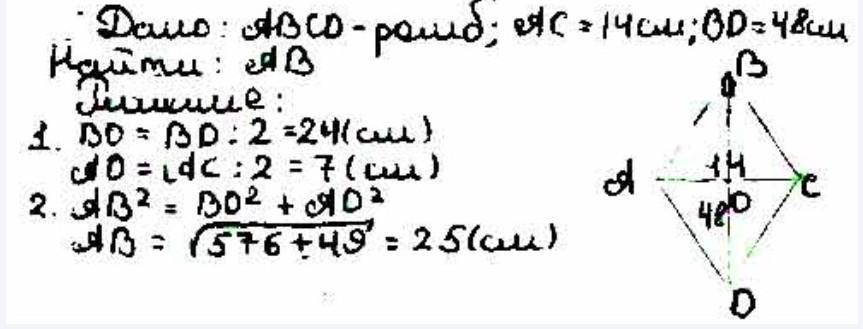 Дано: ABCD - ромб; AC = 14см; BD = 48см
Найти: AB
Решение:
1. BO = BD : 2 = 24(см)
AO = AC : 2 = 7(см)
2. AB² = BO² + AO²
AB = √576+49 = 25(см)
B
A
14
C
48
O
D